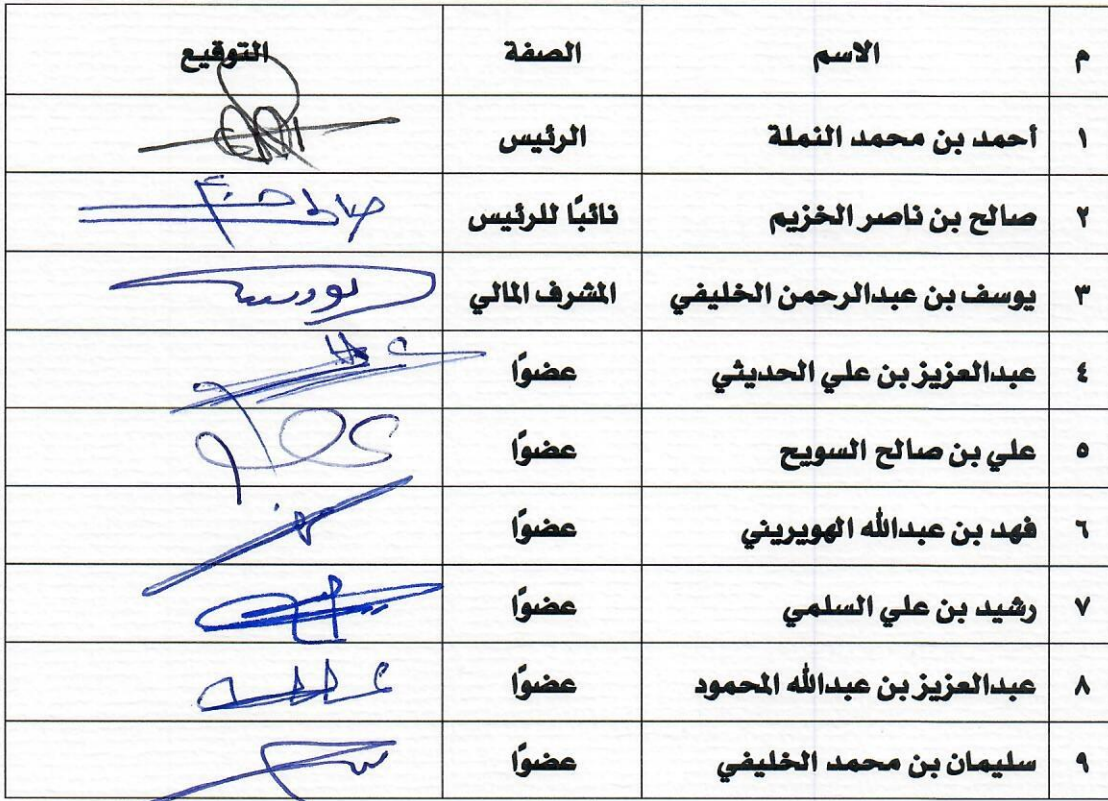 م الاسم الصفة التوقيع
١ أحمد بن محمد النملة الرئيس
٢ صالح بن ناصر الخزيم نائبًا للرئيس
٣ يوسف بن عبدالرحمن الخليفي المشرف المالي
٤ عبدالعزيز بن علي الحديثي عضوًا
٥ علي بن صالح السويح عضوًا
٦ فهد بن عبدالله الهويريني عضوًا
٧ رشيد بن علي السلمي عضوًا
٨ عبدالعزيز بن عبدالله المحمود عضوًا
٩ سليمان بن محمد الخليفي عضوًا